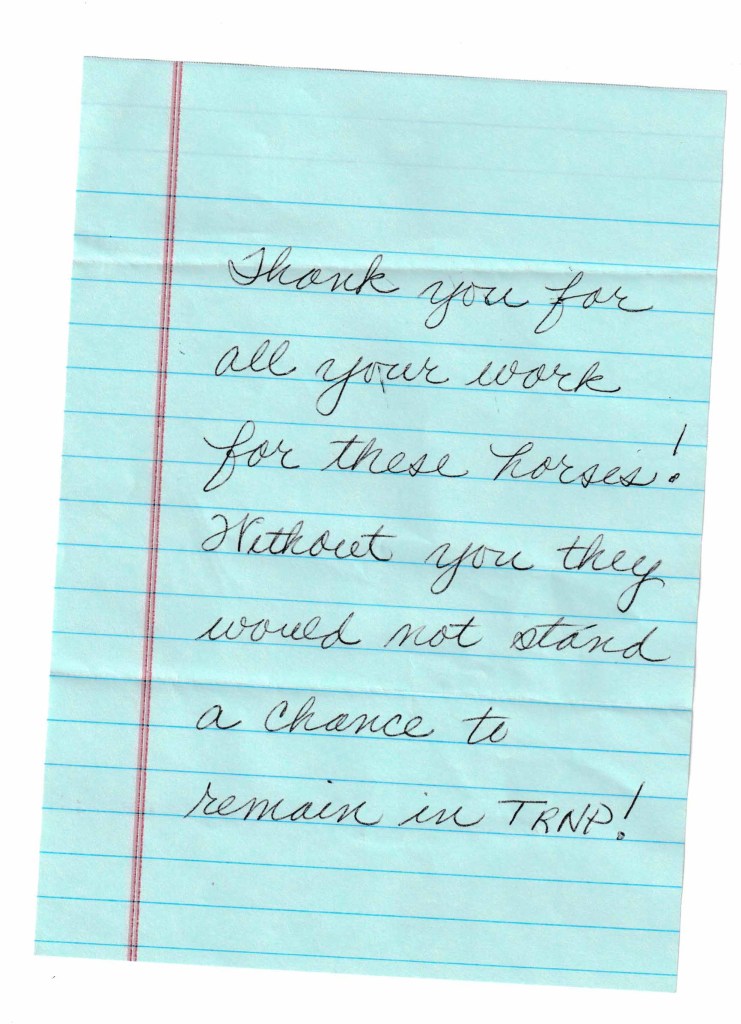 Thank you for
all your work
for these horses!
Without you they
would not stand
a chance to
remain in TRNP!